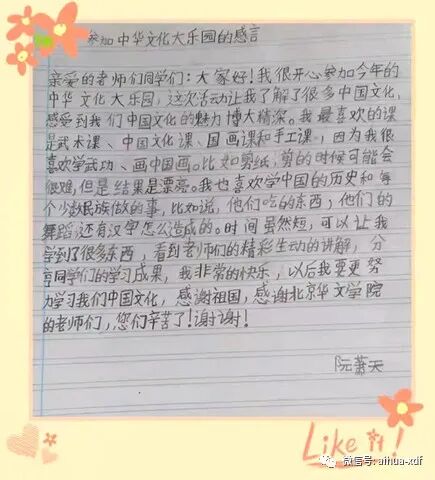 参加中华文化大乐园的感言
亲爱的老师们同学们：大家好！我很开心参加今年的
中华文化大乐园，这次活动让我了解了很多中国文化，
感受到我们中国文化的魅力博大精深。我最喜欢的课
是武术课、中国文化课、国画课和手工课，因为我很
喜欢学武功、画中国画。比如剪纸，剪的时候可能会
很难，但是结果是漂亮。我也喜欢学中国的历史和每
个少数民族做的事，比如说，他们吃的东西，他们的
舞蹈，还有汉字怎么造成的。时间虽然短，可以让我
学到了很多东西，看到老师们的精彩生动的讲解，分
享同学们的学习成果，我非常的快乐，以后我要更努
力学习我们中国文化，感谢祖国，感谢北京华文学院
的老师们，您们辛苦了！谢谢！
阮萧天
Like it!
微信号: aihua-xdf